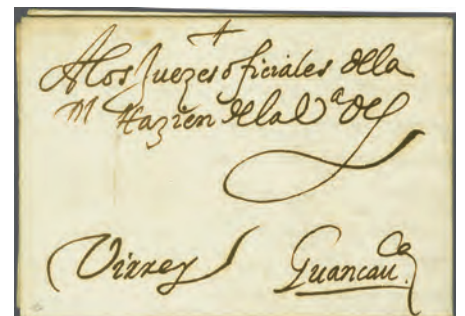 +
A los Juezes oficiales de la
Rl Hazien de la Va de
Virrey Guancauca